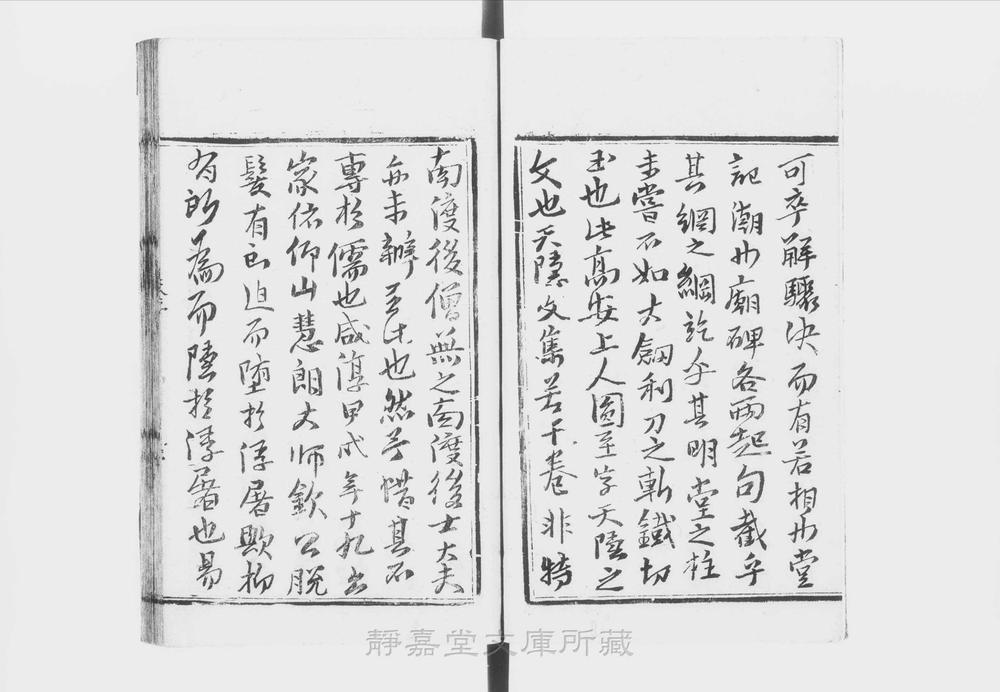 可卒解驟決而有若相州堂
記潮州廟碑各兩起句截乎
其綱之綱訖乎其明堂之柱
未嘗不如大劒利刀之斬鐵切
玉也此高安上人圓至字天隱之
文也天隱文集若干卷非特
南渡後僧無之南渡後士大夫
亦未辦至此也然予惜其不
專於儒也咸淳甲戌年十九出
家依仰山慧朗大師欽公脫
髮有已迫而墮於浮屠歟抑
有所爲而隱於浮屠也易
靜嘉堂文庫所藏